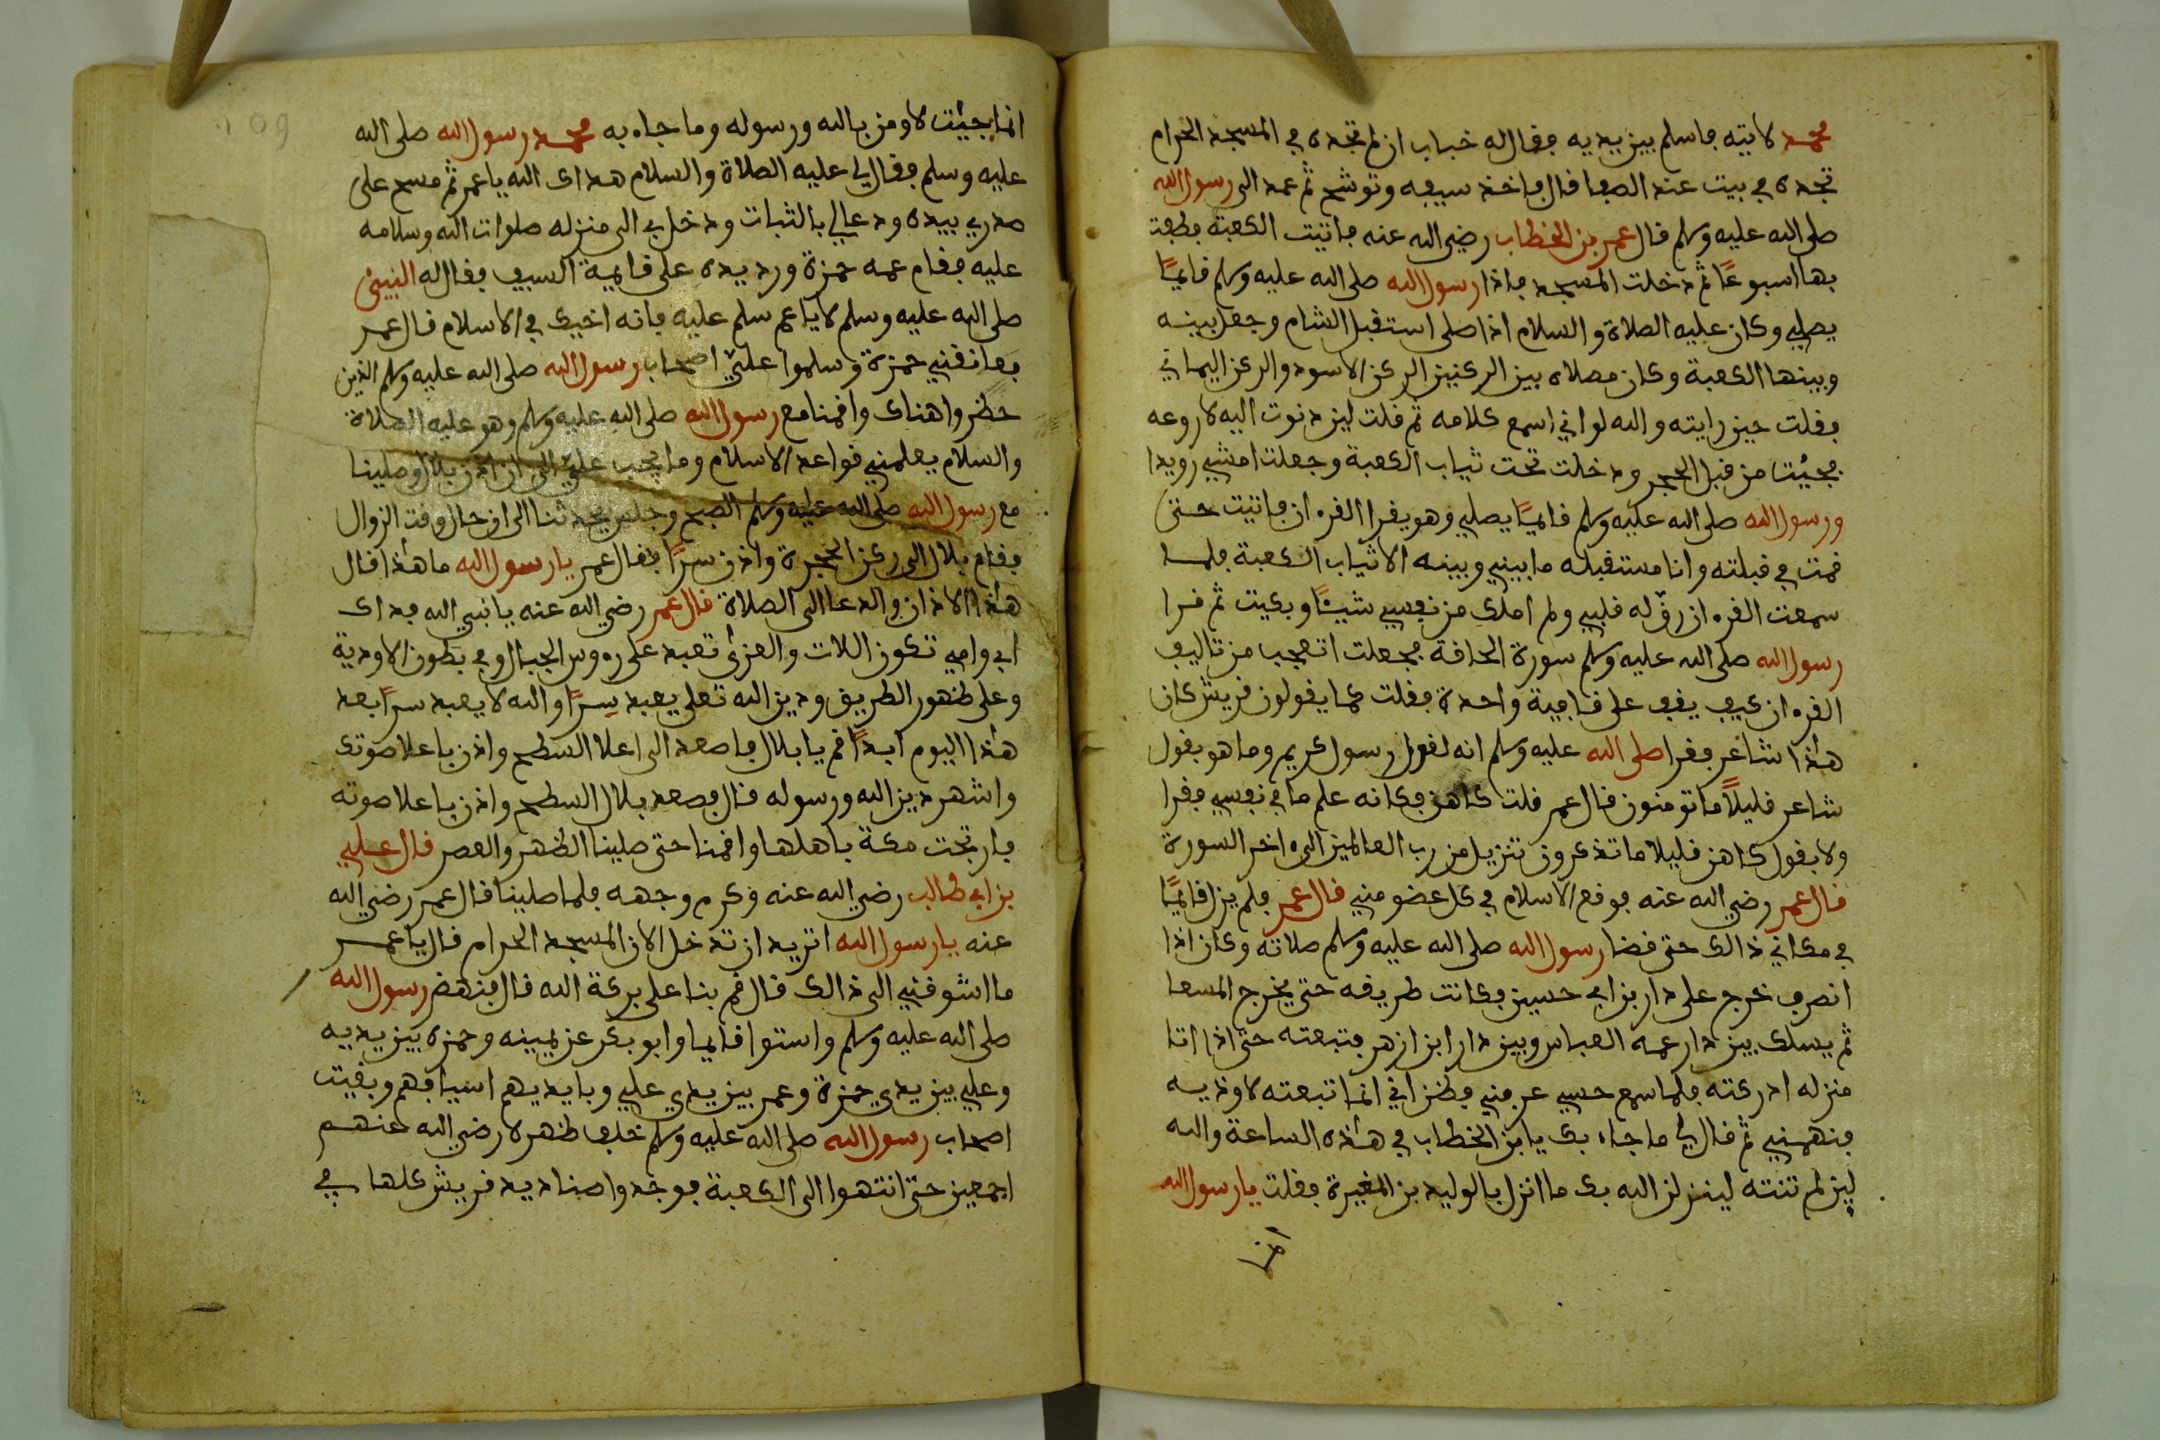 محمد لاتيته فاسلم بين يديه ففال له خباب ان لم تجده في المسجد الحرام
تجده في بيت عند الصفا فال فاخذ سيفه وتوشح ثم عمد الى رسول الله
صلى الله عليه وسلم فال عمر بن الخطاب رضي الله عنه فاتيت الكعبة فطفت
بها اسبوعًا ثم دخلت المسجد فاذا رسول الله صلى الله عليه وسلم فايمًا
يصلي وكان عليه الصلاة والسلام اذا صلى استفبل الشام وجعل بينه
وبينها الكعبة وكان مصلاه بين الركنين الركن الاسود والركن اليماني
ففلت حين رايته والله لو اني اسمع كلامه ثم فلت لين دنوت اليه لاروعه
فجيت من فبل الحجر ودخلت تحت ثياب الكعبة وجعلت امشي رويدا
ورسول الله صلى الله عليه وسلم فايمًا يصلي وهو يفرا الفرءان فاتيت حتى
فمت في فبلته وانا مستفبله ما بيني وبينه الا ثياب الكعبة فلما
سمعت الفرءان رقّ له فلبي ولم املك من نفسي شيئًا وبكيت ثم فرا
رسول الله صلى الله عليه وسلم سورة الحافة فجعلت اتعجب من تاليف
الفرءان كيف يفف على فافية واحدة ففلت كما يفولون فريش كان
هذا شاعر ففرا صلى الله عليه وسلم انه لفول رسول كريم وما هو بفول
شاعر فليلاً ما تومنون فال عمر فلت كاهن فكانه علم ما في نفسي ففرا
ولا بفول كاهن فليلا ما تذكرون تنزيل من رب العالمين الى ءاخر السورة
فال عمر رضي الله عنه فوفع الاسلام في كل عضو مني فال عمر فلم يزل فايمًا
في مكاني ذالك حتى فضا رسول الله صلى الله عليه وسلم صلاته وكان اذا
انصرف خرج على دار بن ابي حسين فكانت طريفه حتى يخرج المسعا
ثم يسلك بين دار عمه العباس وبين دار ابن ازهر فتبعته حتى اذا اتا
منزله ادركته فلما سمع حسي عرفني فظن اني انما تبعته لاوذيه
فنهمني ثم فال لي ما جاء بك يا بن الخطاب في هذه الساعة والله
لين لم تنته لينزلن الله بك ما انزل بالوليد بن المغيرة ففلت يا رسول الله
انما جيئت لاومن بالله ورسوله وما جاء به محمد رسول الله صلى الله
عليه وسلم ففال لي عليه الصلاة والسلام هداك الله يا عمر ثم مسح على
صدري بيده ودعالي بالثبات ودخل بي الى منزله صلوات الله وسلامه
عليه ففام عمه حمزة ورد يده على فايمة السيف ففال له النبيء
صلى الله عليه وسلم لا يا عم سلم عليه فانه اخيك في الاسلام فال عمر
فعانفني حمزة وسلموا عليّ اصحاب رسول الله صلى الله عليه وسلم الذين
حظروا هناك وافمنا مع رسول الله صلى الله عليه وسلم وهو عليه الصلاة
والسلام يعلمني فواعد الاسلام وما يجب عليّ الى ان اذن بلال وصلينا
مع رسول الله صلى الله عليه وسلم الصبح وجلس يحدثنا الى ان حال وفت الزوال
ففام بلال الى ركن الحجرة واذن سرًا ففال عمر يا رسول الله ما هذا فال
هذا الاذان والدعا الى الصلاة فال عمر رضي الله عنه يا نبي الله فداك
ابي وامي تكون اللات والعزى تعبد على رءوس الجبال وفي بطون الاودية
وعلى ظهور الطريق ودين الله تعلى يعبد سِرًا والله لا يعبد سرًا بعد
هذا اليوم ابدًا فم يا بلال فاصعد الى اعلا السطح واذن باعلا صوتك
واشهر دين الله ورسوله فال فصعد بلال السطح واذن باعلا صوته
فارتجت مكة باهلها وافمنا حتى صلينا الظهر والعصر فال علي
بن ابي طالب رضي الله عنه وكرم وجهه فلما صلينا فال عمر رضي الله
عنه يا رسول الله اتريد ان تدخل الان المسجد الحرام فال يا عمر
ما اشوفني الى ذالك فال فم بنا على بركة الله فال فنهض رسول الله
صلى الله عليه وسلم واستوا فايما وابو بكر عن يمينه وحمزه بين يديه
وعلي بين يدي حمزة وعمر بين يدي علي وبايديهم اسيافهم وبفيت
اصحاب رسول الله صلى الله عليه وسلم خلف ظهره رضي الله عنهم
اجمعين حتى انتهوا الى الكعبة فوجدوا صناديد فريش كلها في